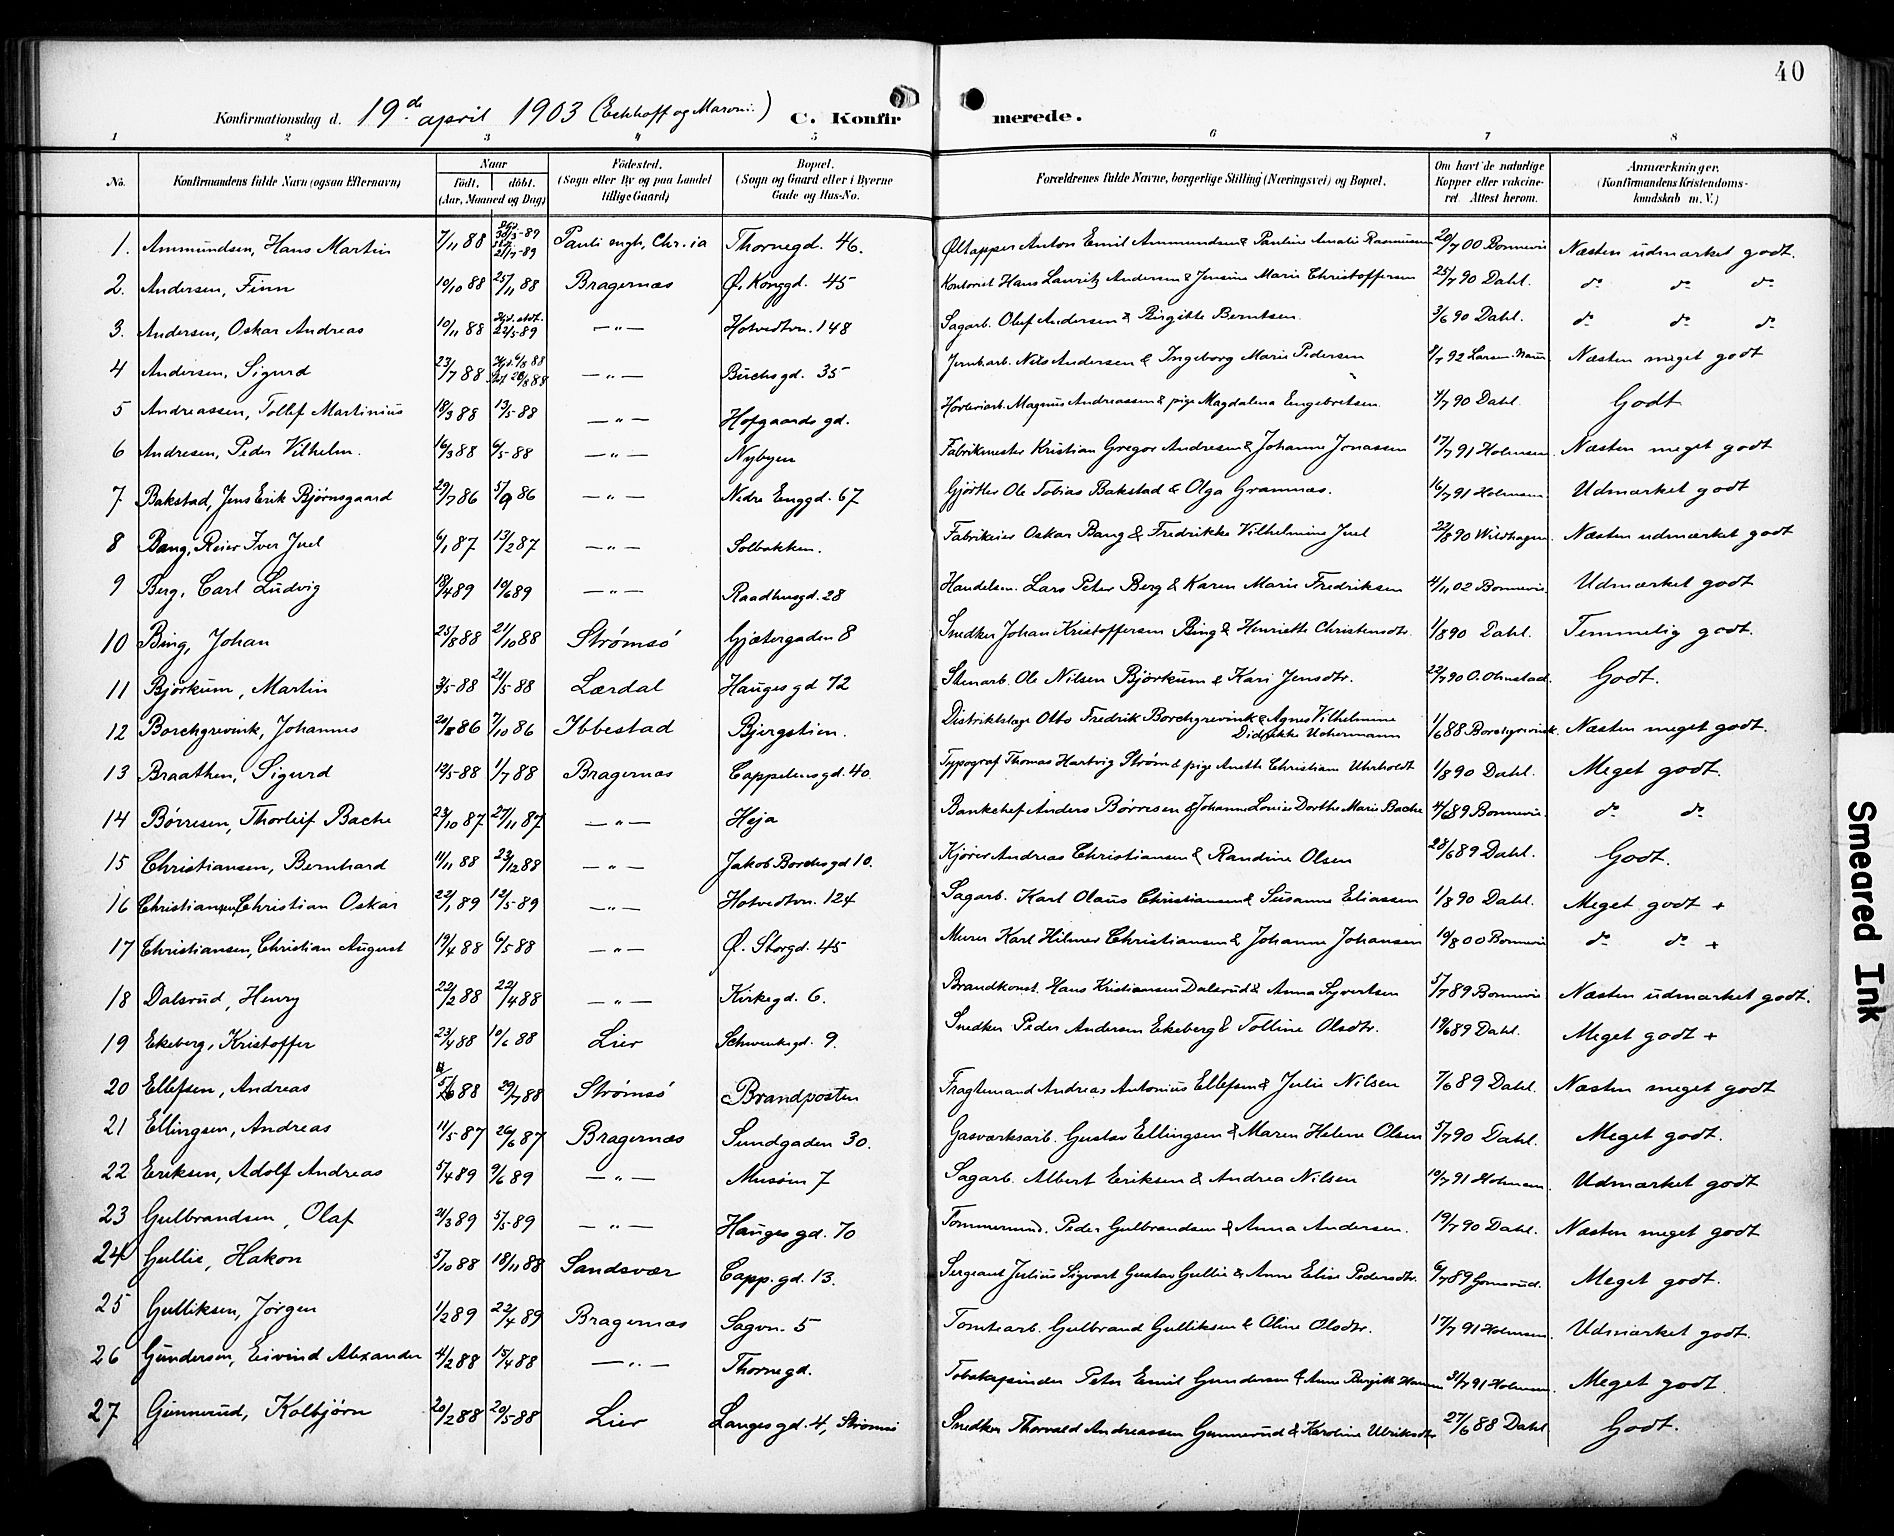 40
Konfirmationsdag d. 19de april 1903 (Eckhoff og Maroni.) C. Konfirmerede.
1 2 3 4 5 6 7 8
No. Konfirmandens fulde Navn (ogsaa Efternavn) Naar født, døbt. (Aar, Maaned og Dag) Fødested. (Sogn eller By og paa Landet tillige Gaard) Bopæl. (Sogn og Gaard eller i Byerne Gade og Hus-No. Forældrenes fulde Navne, borgerlige Stilling (Næringsvei) og Bopæl. Om havt de naturlige Kopper eller vakcineret. Attest herom. Anmærkninger. (Konfirmandens Kristendomskundskab m. V.)
1. Ammundsen, Hans Martin 7/11 88 30/3-89 21/7-89 Pauli mgh, Chr.ia Thornegd. 46. Øltapper Anton Emil Ammundsen & Pauline Amalie Rasmussen 20/7 00 Bonnevie Næsten udmærket godt.
2. Andersen, Finn 10/10 88 25/11 88 Bragernæs Ø. Konggd. 45 Kontorist Hans Lauritz Andersen & Jensine Marie Christoffersen 25/7 90 Dahl. do do do
3. Andersen, Oskar Andreas 10/11 88 22/5-89 —"— Hotvedtvn. 148 Sagarb. Oluf Andersen & Birgitte Berntsen. 3/6 90 Dahl. do do do
4 Andersen, Sigurd 23/7 88 6/8 88 26/8 88 —"— Buchsgd. 35 Jernbarb. Nils Andersen & Ingeborg Marie Pedersen 8/7 92 Larsen Næsten meget godt
5 Andreassen, Tollef Martinius 18/3 88 13/5-88 —"— Hofgaards gd. Høvleriarb. Magnus Andreassen & pige Magdalena Engebretsen. 4/7 90 Dahl. Godt
6 Andresen, Peder Vilhelm. 16/3 88 6/5-88 —"— Nybyen Fabrikmester Kristian Gregor Andresen & Johanne Jonassen 17/7 91 Holmsen. Næsten meget godt
7 Bakstad, Jens Erik Bjørnsgaard 29/7 86 5/9 86 —"— Nedre Enggd. 67 Gjørtler Ole Tobias Bakstad & Olga Gramnæs. 16/7 91 Holmsen. Udmærket godt
8 Bang, Reier Iver Juel 6/1 87 13/2 87 —"— Solbakken. Fabrikeier Oskar Bang & Fredrikke Vilhelmine Juel 22/8 90 Wildhagen. Næsten udmærket godt
9 Berg, Carl Ludvig 18/4 89 10/6 89 —"— Raadhusgd. 28 Handelsm. Lars Peter Berg & Karen Marie Fredriksen 4/11 02 Bonnevie. Udmærket godt
10 Bing, Johan 25/8 88 21/10 88 Strømsö Gjætergaden 8 Snedker Johan Kristoffersen Bing & Henriette Christensdtr. 1/8 90 Dahl. Temmelig godt.
11 Bjørkum, Martin 3/5-88 21/5-88 Lærdal Hauges gd 72 Stenarb. Ole Nilsen Bjørkum & Kari Jensdtr. 22/7 90 O. Olmstad. Godt.
12 Borchgrevink, Johannes 20/8 86 7/10 86 Ibbestad Bjergstien. Distriktslæge Otto Fredrik Borchgrevink & Agnes Vilhelmine
Didrikke Uchermann 1/6 88 Borchgrevink. Næsten meget godt.
13 Braathen, Sigurd 12/5-88 1/7 88 Bragernæs Cappelens gd. 40. Typograf Thomas Hartvig Strøm & pige Anette Christiane Uhrholdt 1/8 90 Dahl. Meget godt.
14 Børresen, Thorleif Bache 23/10 87 27/11 87 —"— Heja Bankchef Anders Børresen & Johanne Lovise Dorthe Marie Bache 4/6 89 Bonnevie. do do
15 Christiansen, Bernhard 11/11 88 23/12 88 —"— Jakob Borchs gd 10. Kjører Andreas Christiansen & Randine Olsen 28/6 89 Dahl. Godt.
16 Christiansen, Christian Oskar 22/1 89 12/5-89 —"— Hotvedtvn. 124 Sagarb. Karl Olaus Christiansen & Susanne Eliassen 1/8 90 Dahl. Meget godt +
17 Christiansen, Christian August 19/4 88 6/5 88 —"— Ø. Storgd. 45 Murer Karl Hilmer Christiansen & Johanne Johansen 10/8 00 Bonnevie do do +
18 Dalsrud, Henry 22/2 88 22/4 88 —"— Kirkegd. 6. Brandkonst. Hans Kristiansen Dalsrud & Anna Syvertsen 5/7 89 Bonnevie Næsten udmærket godt.
19 Ekeberg, Kristoffer 23/4 88 10/6 88 Lier Schwenksgd. 9. Snedker Peder Andersen Ekeberg & Tolline Olsdtr. 19/6 89 Dahl. Meget godt +
20 Ellefsen, Andreas 5/6 88 29/7 88 Strømsö Brandposten Fragtemand Andreas Antonius Ellefsen & Julie Nilsen 7/6 89 Dahl. Næsten meget godt
21 Ellingsen, Andreas 11/5-87 26/6 87 Bragernæs Sundgaden 30. Gasværksarb. Gustav Ellingsen & Maren Helene Olsen 5/7 90 Dahl. Meget godt.
22 Eriksen, Adolf Andreas 5/4 89 9/6 89 —"— Musöen 7 Sagarb. Albert Eriksen & Andrea Nilsen 10/7 91 Holmsen. Udmærket godt
23 Gulbrandsen, Olaf 21/3 89 5/5-89 —"— Hauges gd. 70 Tømmermd. Peder Gulbrandsen & Anna Andersen. 19/7 90 Dahl. Næsten meget godt
24 Gullie, Hakon 5/10 88 18/11 88 Sandsvær Capp. gd. 13. Sergeant Julius Sigvart Gustav Gullie & Anne Elise Pedersdtr. 6/7 89 Gomsrud. Meget godt.
25 Gulliksen, Jørgen 1/2 89 22/4 89 Bragernæs Sagvn. 5 Tomtearb. Gulbrand Gulliksen & Oline Olsdtr. 17/7 91 Holmsen. Udmærket godt.
26 Gundersen, Eivind Alexander 4/2 88 15/4 88 —"— Thornegd. Tobakspinder Peter Emil Gundersen & Anne Birgitte Hansen 31/7 91 Holmsen. Meget godt.
27 Gunnerud, Kolbjørn 20/2 88 20/5-88 Lier Langes gd. 4, Strømsö Snedker Thorvald Andreassen Gunnerud & Karoline Ulriksdtr 27/6 88 Dahl Godt.
Smeared Ink